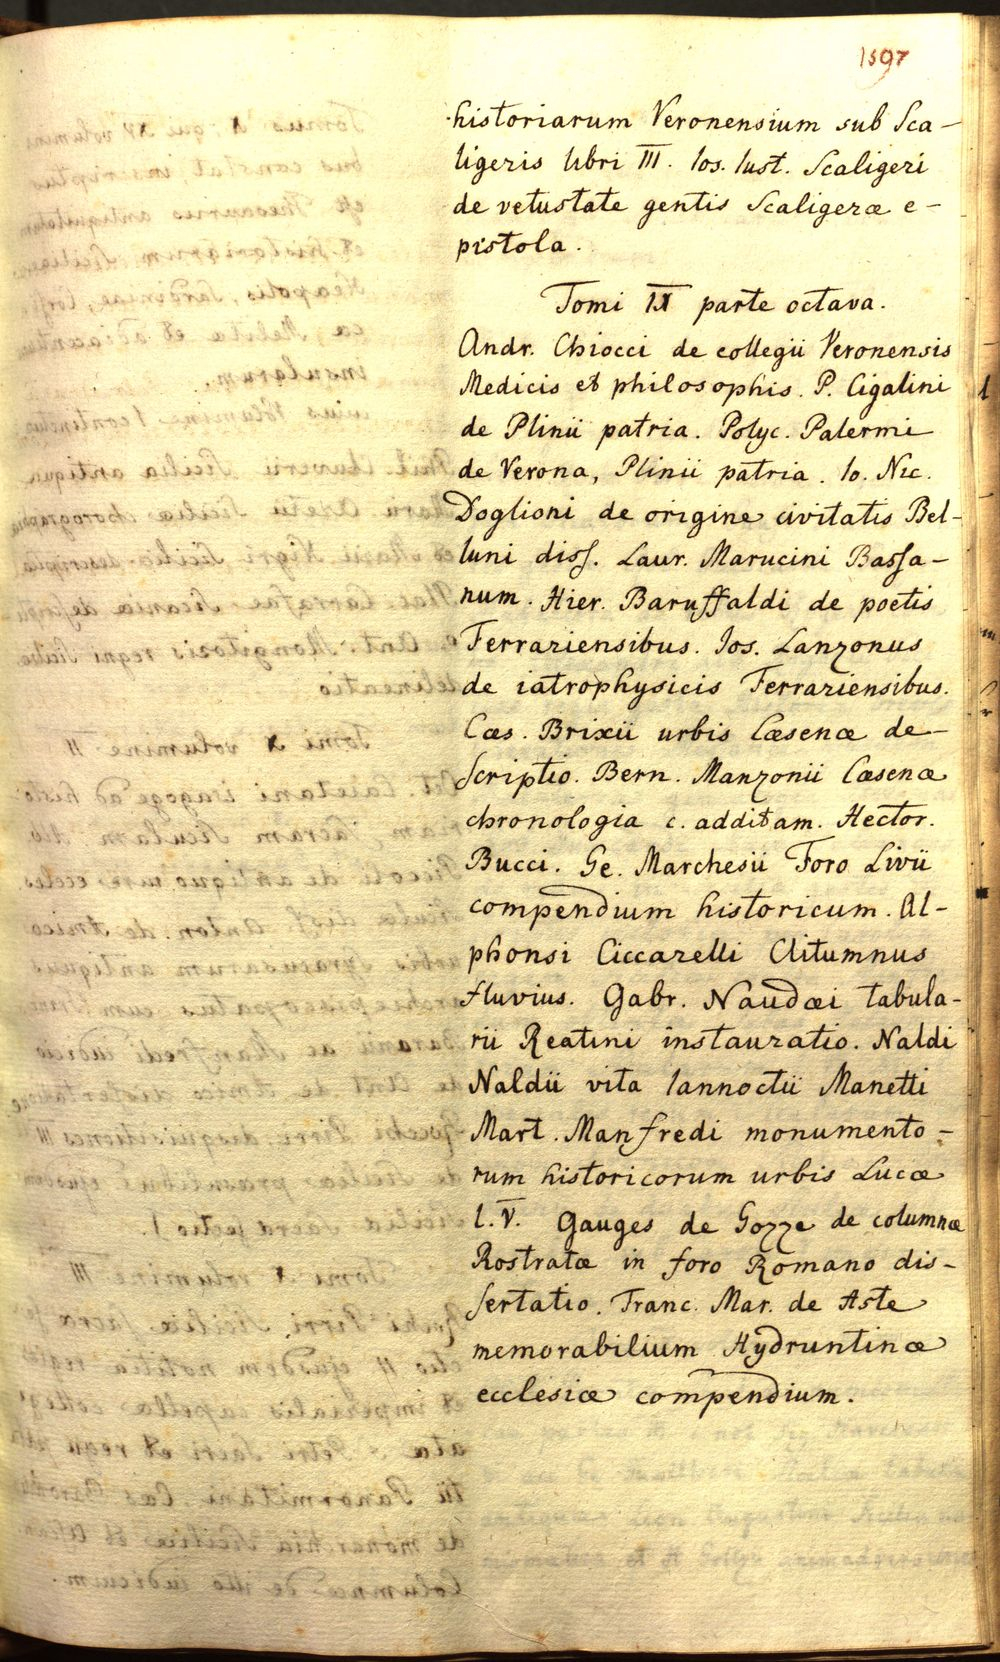 1597
historiarum Veronensium sub Sca-
ligeris libri III. Ios. Iust. Scaligeri
de vetustate gentis Scaligeræ e-
pistola.
Tomi IX parte octava.
Andr. Chiocci de collegii Veronensis
Medicis et philosophis. P. Cigalini
de Plinii patria. Polyc. Palermi
de Verona, Plinii patria. Io. Nic.
Doglioni de origine civitatis Bel-
luni diss. Laur. Marucini Bassa-
num. Hier. Baruffaldi de poetis
Ferrariensibus. Ios. Lanzonus
de iatrophysicis Ferrariensibus.
Cæs. Brixii urbis Cæsenæ de-
scriptio. Bern. Manzonii Cæsenæ
chronologia c. additam. Hector.
Bucci. Ge. Marchesii Foro Livii
compendium historicum. Al-
phonsi Ciccarelli Clitumnus
fluvius. Gabr. Naudæi tabula-
rii Reatini instauratio. Naldi
Naldii vita Iannoctii Manetti
Mart. Manfredi monumento-
rum historicorum urbis Lucæ
l. V. Gauges de Gozze de columnæ
Rostratæ in foro Romano dis-
sertatio. Franc. Mar. de Aste
memorabilium Hydruntinæ
ecclesiæ compendium.